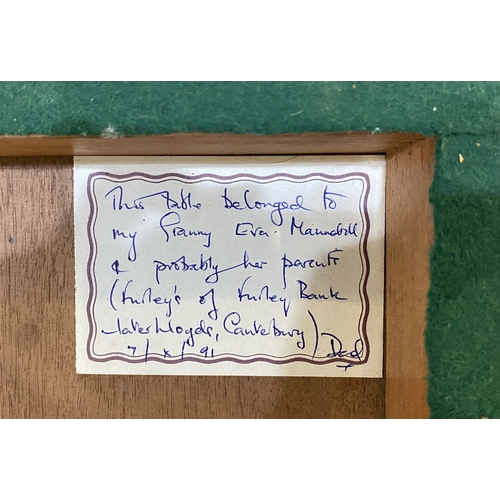 This table belonged to
my Granny Eva Mannooll
& probably her parents
(Furley's of Furley Bank
later Lloyds, Canterbury)
7/x/91 Dad